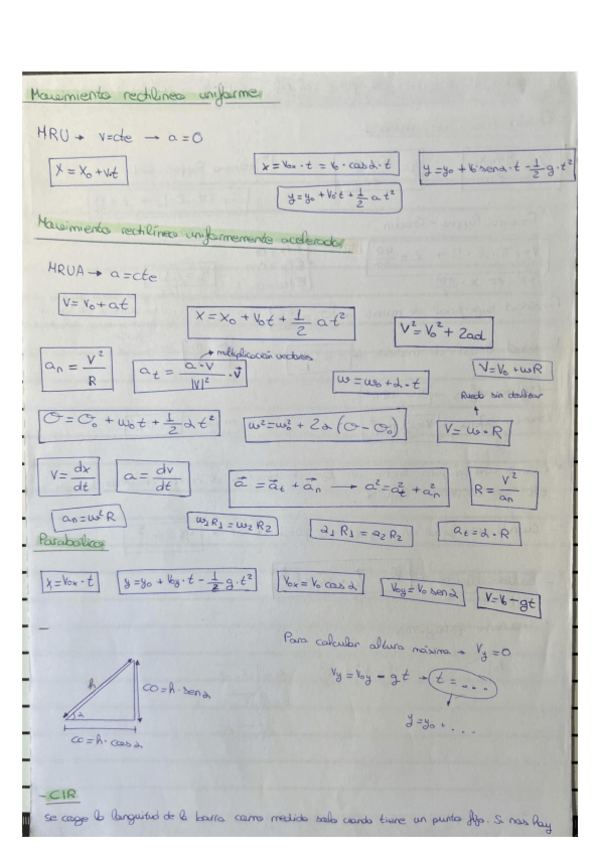 Movimiento rectilíneo uniforme
MRU → v=cte → a=0
x = x₀ + vt
x = v₀ₓ · t = v₀ · cos α · t
y = y₀ + v₀ sen α · t - 1/2 g · t²
y = y₀ + v₀ t + 1/2 a t²
Movimiento rectilíneo uniformemente acelerado
MRUA → a=cte
v = v₀ + at
x = x₀ + v₀ t + 1/2 a t²
v² = v₀² + 2ad
aₙ = v²/R
→ multiplicación vectores
aₜ = a·v/|v|² · v⃗
ω = ω₀ + α · t
v = v₀ + ωR
Rueda sin deslizar
θ = θ₀ + ω₀ t + 1/2 α t²
ω² = ω₀² + 2α (θ - θ₀)
v = ω · R
v = dx/dt
a = dv/dt
a⃗ = a⃗ₜ + a⃗ₙ → a² = aₜ² + aₙ²
R = v²/aₙ
aₙ = ω² R
ω₁ R₁ = ω₂ R₂
α₁ R₁ = α₂ R₂
aₜ = α · R
Parabólico
x = v₀ₓ · t
y = y₀ + v₀y · t - 1/2 g · t²
v₀ₓ = v₀ cos α
v₀y = v₀ sen α
v = v₀ - gt
Para calcular altura máxima → Vy = 0
vy = v₀y - gt → t = ...
y = y₀ + ...
h
CO = h · sen α
α
CC = h · cos α
- CIR
Se coge la longuitud de la barra como medida solo cuando tiene un punto fijo. Si nos hay